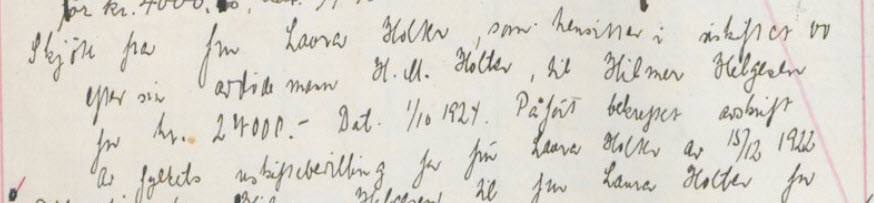 for kr. 4000.
Skjöte fra fru Laura Holter, som hensitter i uskiftet bo
efter sin avdøde mann H. M. Holter, til Hilmer Helgesen
for kr. 24000.- Dat. 1/10 1924. Påført bekreftet avskrift
av fylkets uskiftebevilling for fru Laura Holter av 15/12 1922
Helgesen til fru Laura Holter for